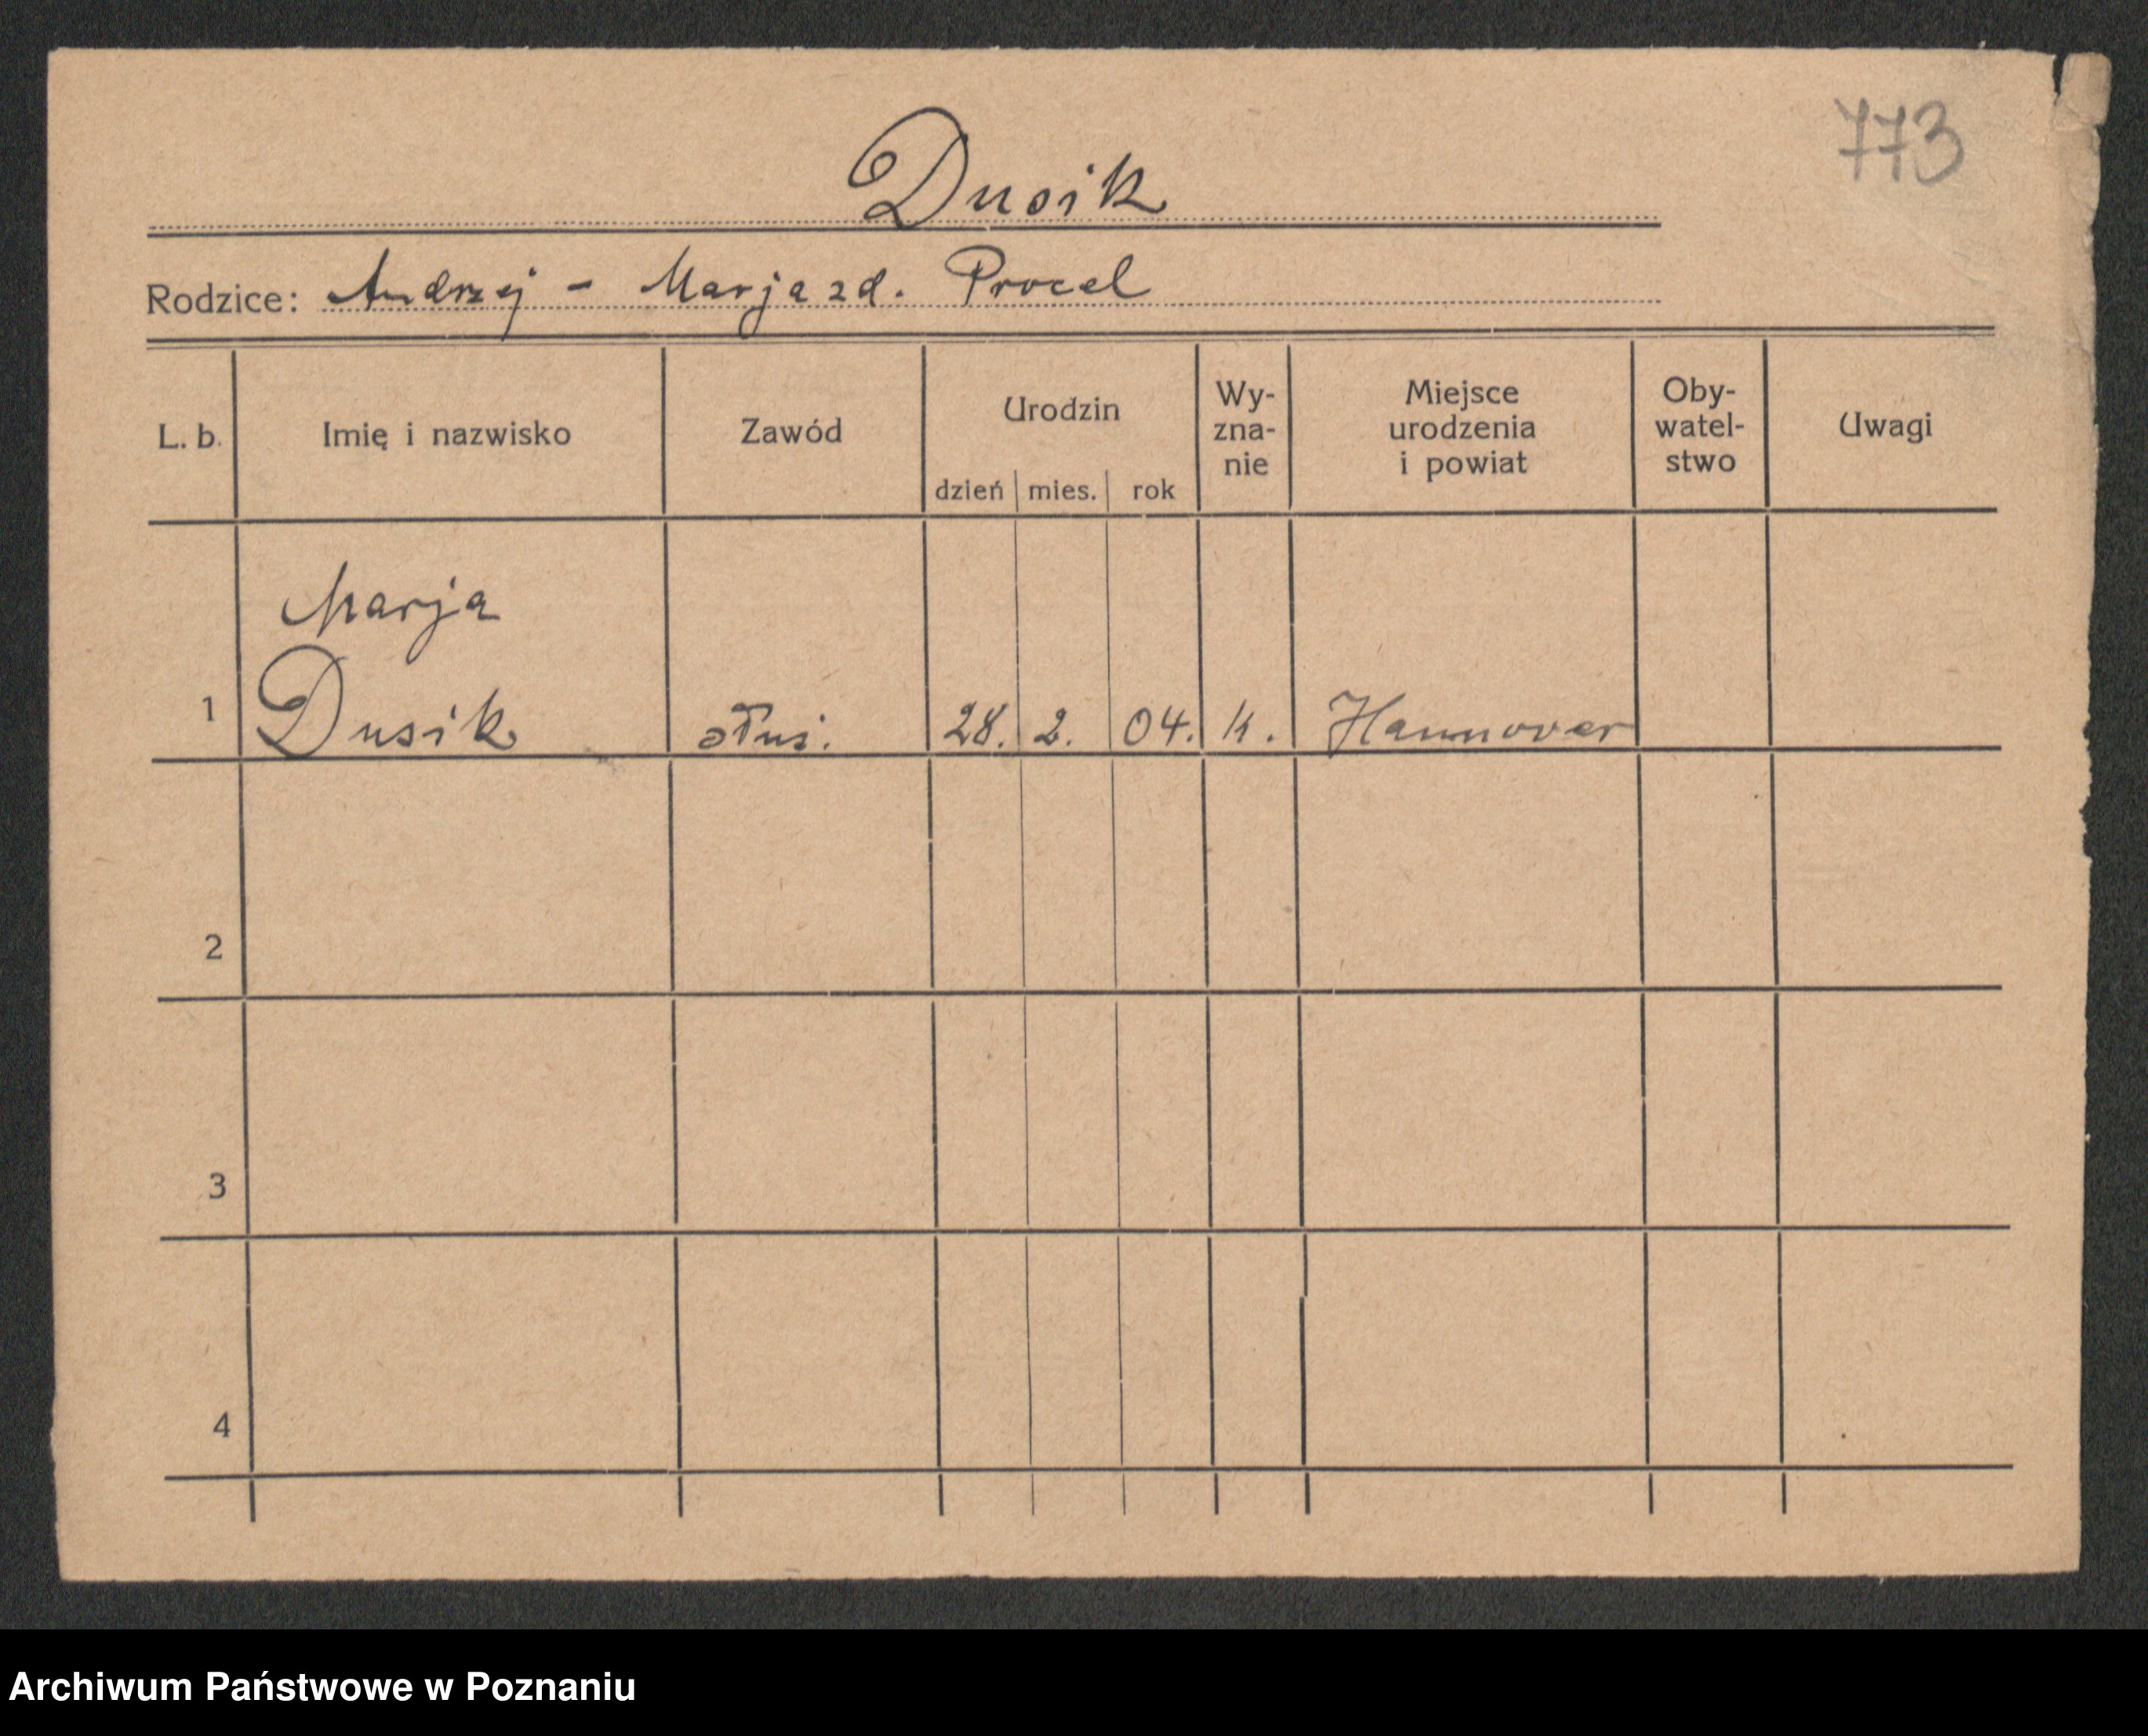 773
Dusik
Rodzice: Andrzej - Marja zd. Procel
L. b.
Imię i nazwisko
Zawód
Urodzin
dzień mies. rok
Wy-
zna-
nie
Miejsce
urodzenia
i powiat
Oby-
watel-
stwo
Uwagi
Marja
1 Dusik służ. 28. 2. 04. k. Hannover
2
3
4
Archiwum Państwowe w Poznaniu